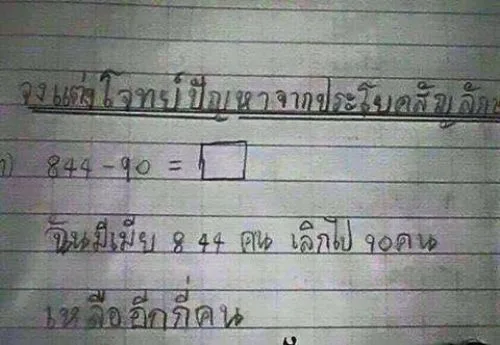 จงแต่งโจทย์ปัญหาจากประโยคสัญลัก
1) 844 - 90 =
ฉันมีเมีย 844 คน เลิกไป 90คน
เหลืออีกกี่คน